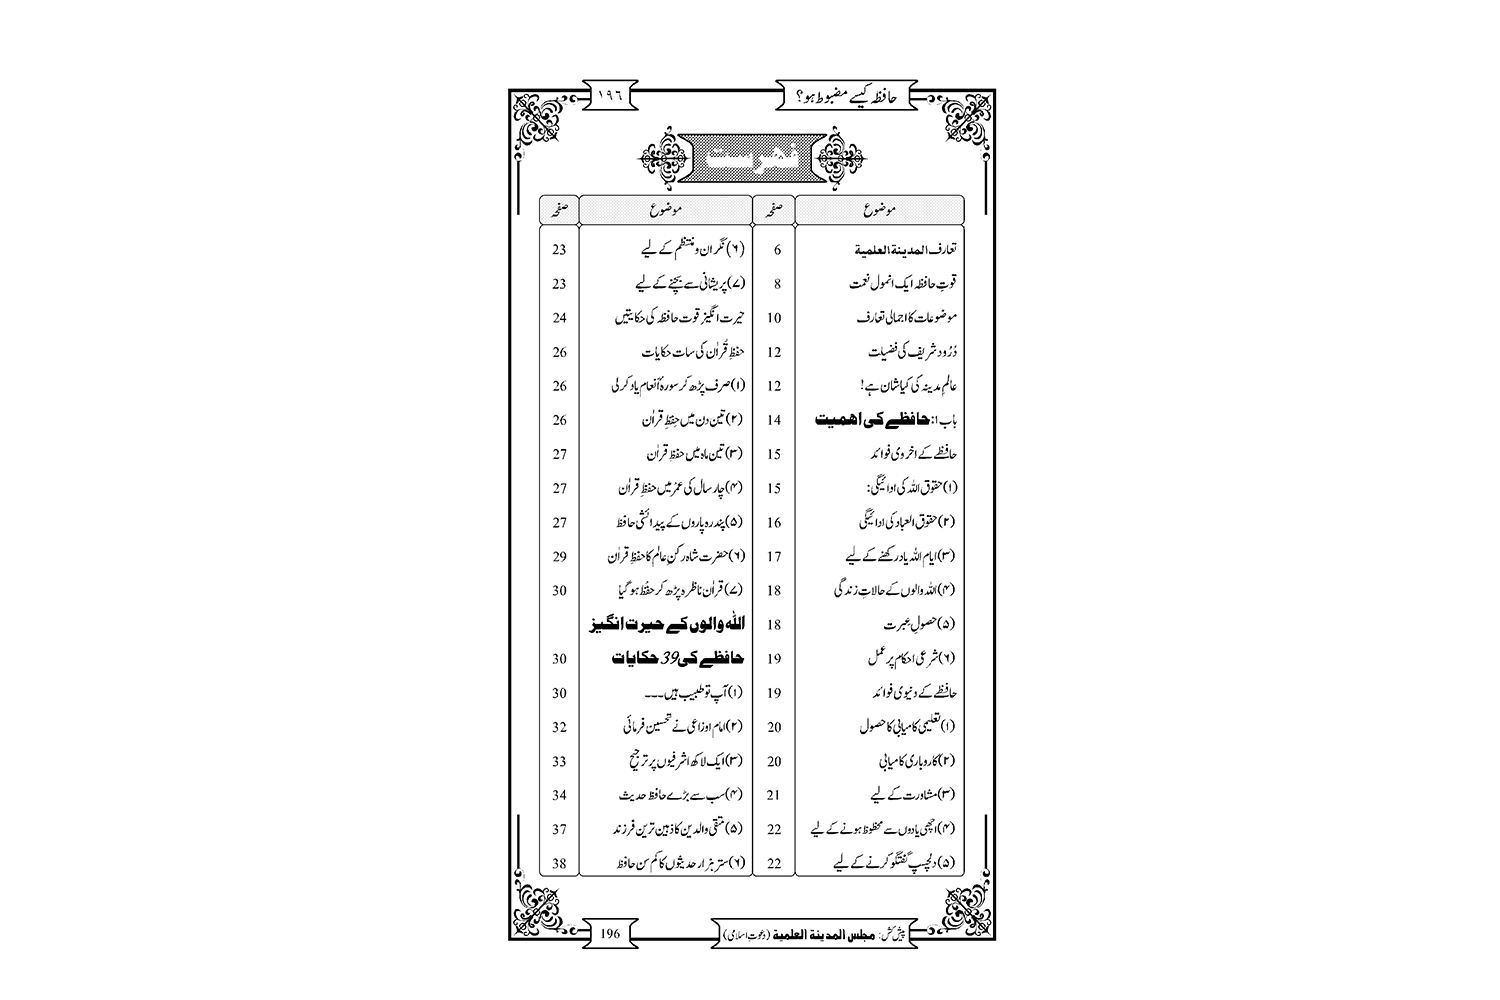 حافظہ کیسے مضبوط ہو؟ ١٩٦
فہرست
موضوع صفحہ موضوع صفحہ
تعارف المدینۃ العلمیۃ 6
قوتِ حافظہ ایک انمول نعمت 8
موضوعات کا اجمالی تعارف 10
دُرُود شریف کی فضیلت 12
عالمِ مدینہ کی کیا شان ہے! 12
باب ۱: حافظے کی اہمیت 14
حافظے کے اخروی فوائد 15
(۱) حقوق اللہ کی ادائیگی: 15
(۲) حقوق العباد کی ادائیگی 16
(۳) ایام اللہ یاد رکھنے کے لیے 17
(۴) اللہ والوں کے حالاتِ زندگی 18
(۵) حصولِ عبرت 18
(۶) شرعی احکام پر عمل 19
حافظے کے دنیوی فوائد 19
(۱) تعلیمی کامیابی کا حصول 20
(۲) کاروباری کامیابی 20
(۳) مشاورت کے لیے 21
(۴) اچھی یادوں سے محظوظ ہونے کے لیے 22
(۵) دلچسپ گفتگو کرنے کے لیے 22
(۶) نگران و منتظم کے لیے 23
(۷) پریشانی سے بچنے کے لیے 23
حیرت انگیز قوت حافظہ کی حکایتیں 24
حفظِ قُراٰن کی سات حکایات 26
(۱) صرف پڑھ کر سورۂ اَنعام یاد کر لی 26
(۲) تین دن میں حِفظِ قراٰن 26
(۳) تین ماہ میں حفظِ قراٰن 27
(۴) چار سال کی عمر میں حفظِ قراٰن 27
(۵) پندرہ پاروں کے پیدائشی حافظ 27
(۶) حضرت شاہ رکنِ عالم کا حفظِ قراٰن 29
(۷) قراٰن ناظرہ پڑھ کر حفظ ہو گیا 30
اللہ والوں کے حیرت انگیز
حافظے کی 39 حکایات 30
(۱) آپ تو طبیب ہیں۔۔۔ 30
(۲) امام اوزاعی نے تحسین فرمائی 32
(۳) ایک لاکھ اشرفیوں پر ترجیح 33
(۴) سب سے بڑے حافظ حدیث 34
(۵) متقی والدین کا ذہین ترین فرزند 37
(۶) ستر ہزار حدیثوں کا کم سن حافظ 38
پیش کش: مجلس المدینۃ العلمیۃ (دعوتِ اسلامی) 196